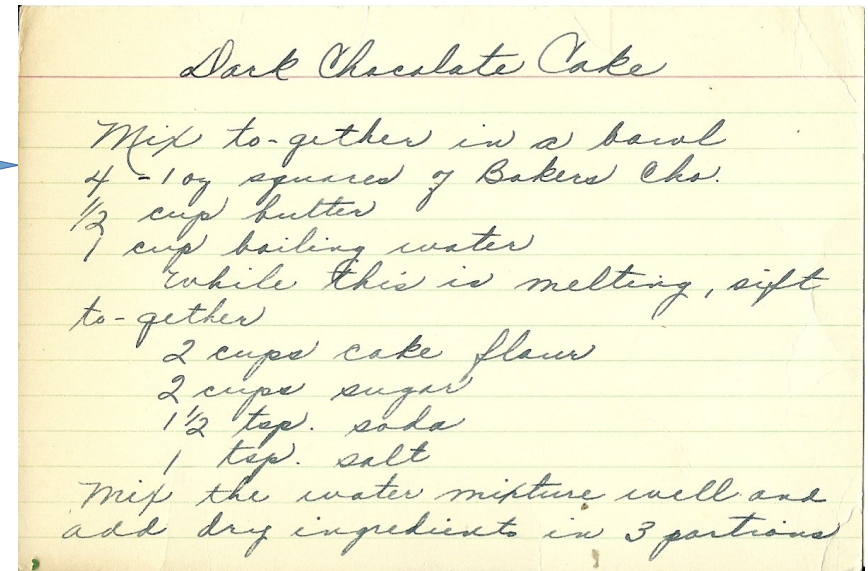 Dark Chocolate Cake
Mix to-gether in a bowl
4 - 1 oz squares of Bakers Cho.
1/2 cup butter
1 cup boiling water
While this is melting, sift
to-gether
2 cups cake flour
2 cups sugar
1 1/2 tsp. soda
1 tsp. salt
Mix the water mixture well and
add dry ingredients in 3 portions